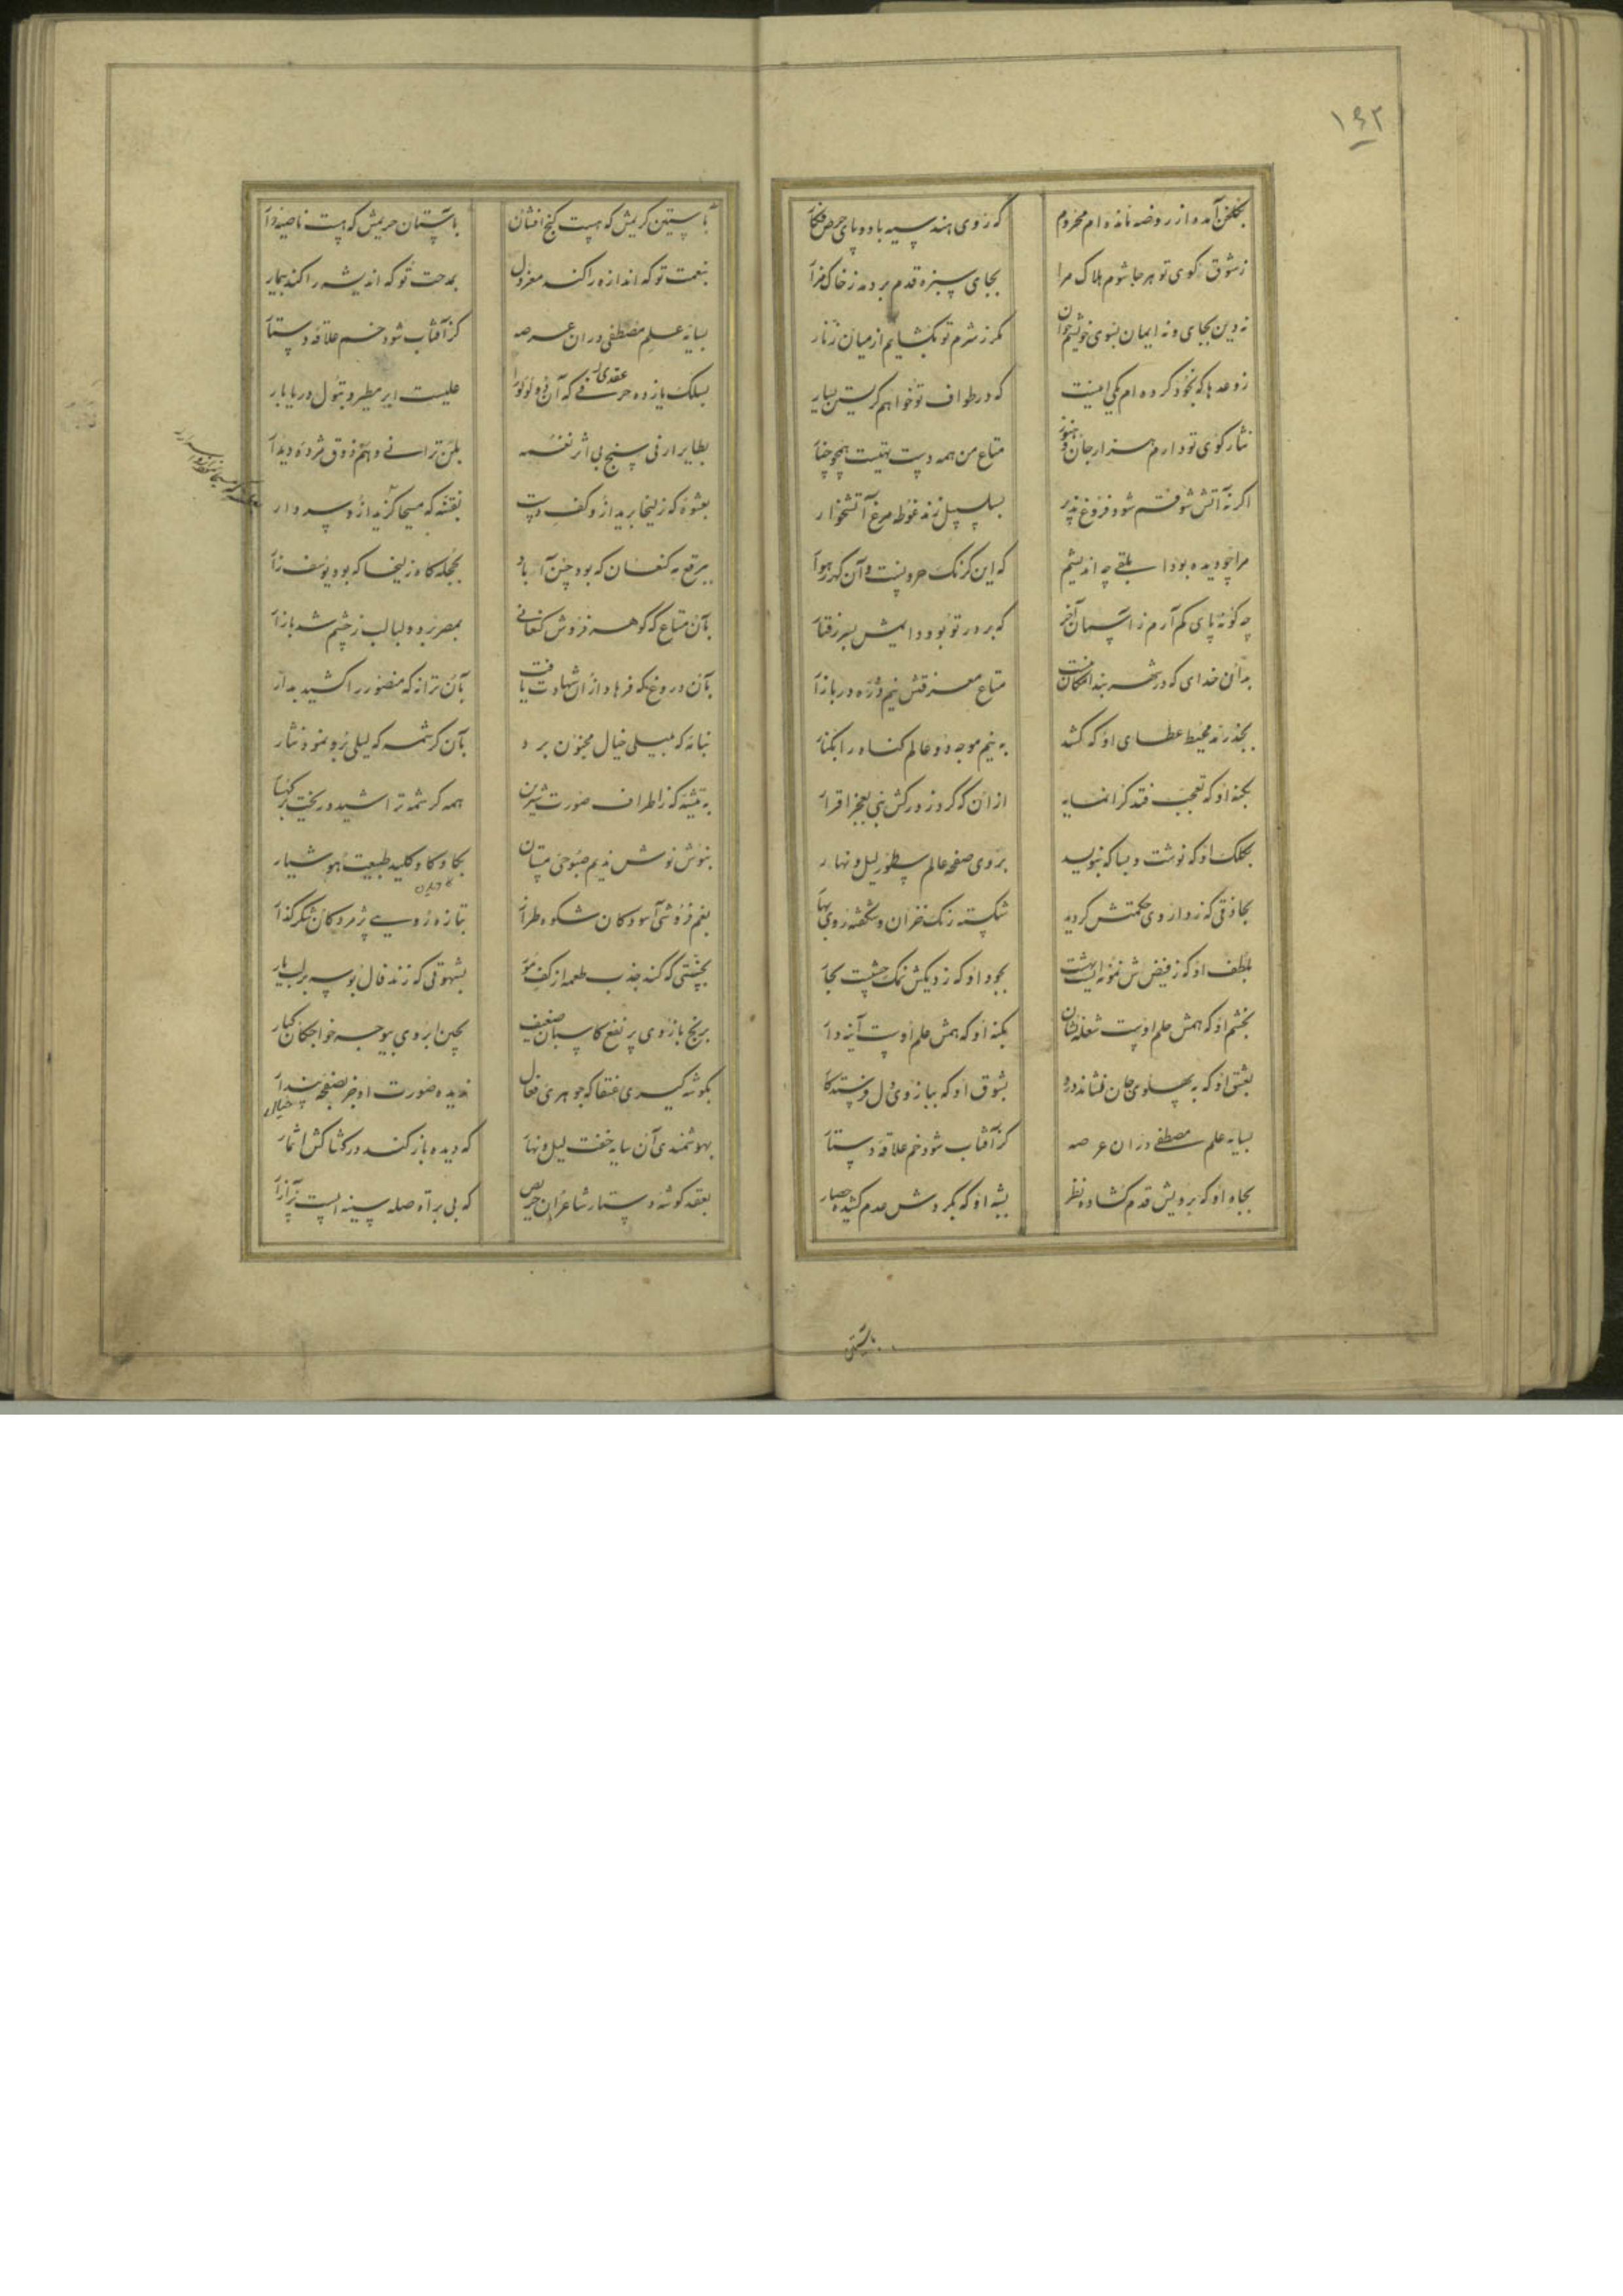 ۱۶۲
بگلخن آمده از روضه مانده ام محروم که روی هند سیه باد و پای حرص فکار
ز شوق کوی تو هر جا شوم هلاک مرا بجای سبزه قدم بر دمد ز خاک مزار
نه دین بجای و نه ایمان بسوی خویشم خوان مگر ز شرم تو بگشایم از میان زنار
ز وعدها که بخود کرده ام یکی اینست که در طواف تو خواهم گریستن بسیار
نثار کوی تو دارم هزار جان و هنوز متاع من همه دست تهیست همچو چنار
اگر نه آتش شوقت شود فروغ پذیر بسلسبیل زند غوطه مرغ آتشخوار
مرا چو دیده بود ابلقی چه اندیشم که این کرنک حرونست و آن کهر رهوار
چه گونه پای کم آرم ز آسمان آخر که بر در تو بود دایمش سر رفتار
بدان خدای که در شهر بند امکان نیست متاع معرفتش نیم ذره در بازار
بجذر و مد محیط عطای او که کشد به نیم موجه دو عالم گناه را بکنار
بکنه او که تعجب فتد گر انسانیه از آن که گرد ز درکش نبی بعجز اقرار
بکلک او که نوشت و بسا که بنویسد بروی صفحه عالم سطور لیل و نهار
بحاذقی که ز داروی حکمتش گردید شکسته رنگ خزان و شکفته روی بهار
بلطف او که ز فیضش نمونه ایست بهشت بجود او که ز دیگش نمک چشست بحار
بخشم او که همش حلم اوست شعله نشان بکنه او که همش علم اوست آینه دار
بعشق او که به پهلوی جان نشاند درد بشوق او که ببازوی دل فرستد کار
بسایه علم مصطفی در آن عرصه کز آفتاب شود خم علاقه دستار
بجاه او که برویش قدم گشاده نظر بشبه او که بگردش عدم کشیده حصار
بآستین
بآستین کریمش که هست گنج افشان بآستان حریمش که هست ناصیه دار
بنعمت تو که اندازه را کند معزول بمدحت تو که اندیشه را کند بیمار
بسایه علم مصطفی در آن عرصه کز آفتاب شود خم علاقه دستار
بسلک یازده عقدی در که آن لولورا علیست ابر مطیر و بتول دریا بار
بطایر ارنی سنج بی اثر نغمه بلن ترانی و هم ذوق مژده دیدار
بعشوه که زلیخا برید ازو کف دست بفتنه که مسیحا گزید ازو سر دار
ببرقع مه کنعان که بود حسن آباد بحجله گاه زلیخا که بود یوسف زار
بآن متاع که گوهر فروش کنعانی بمصر برد و لبالب ز چشم شد بازار
بآن دروغ که فرهاد از آن شهادت یافت بآن ترانه که منصور را کشید بدار
بآن کرشمه که لیلی برو نمود نثار
به تیشه که ز اطراف صورت شیرین همه کرشمه تراشید و ریخت بر کهسار
بنوش نوش ندیم صبوحی مستان بکاو کاو کلید طبیعت هوشیار
بغم فروشی آسودگان شکوه طراز بتازه رویی پژمردگان شکر گذار
بجستی که کند جذب طعمه از کف مور بشهوتی که زند فال بوسه بر لب یار
برنج بازوی پر نفع کاسبان ضعیف بچین ابروی بیوجه خواجگان کبار
بگوشه گیری عنقا که جوهری فعال ندیده صورت او جز بصفحه پندار
خیال
بهوشمندی آن سایه خفت لیل و نهار که دیده باز کند در کشاکش اثمار
بعقد گوشه دستار شاعران حریص که بی برآت صله سینه ایست پر آزار